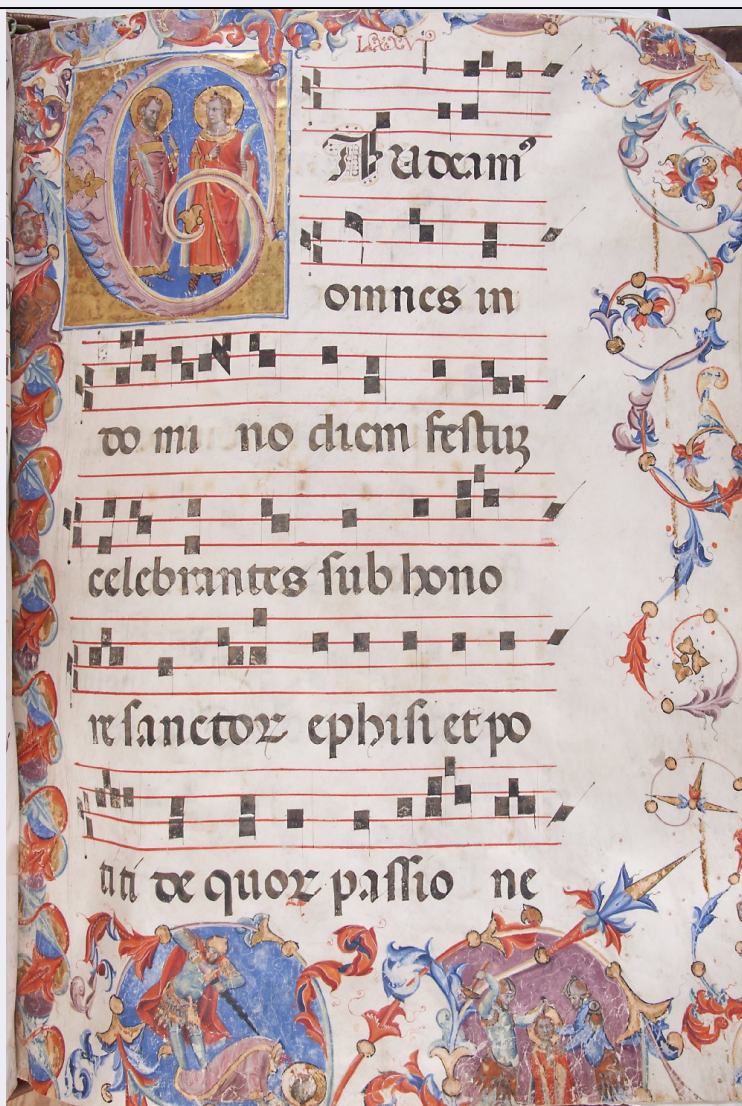 LXXVI
GAudeam᾽
omnes in
do mi no diem festiuꝫ
celebrantes sub hono
re sanctoꝝ ephisi et po
titi de quoꝝ passio ne